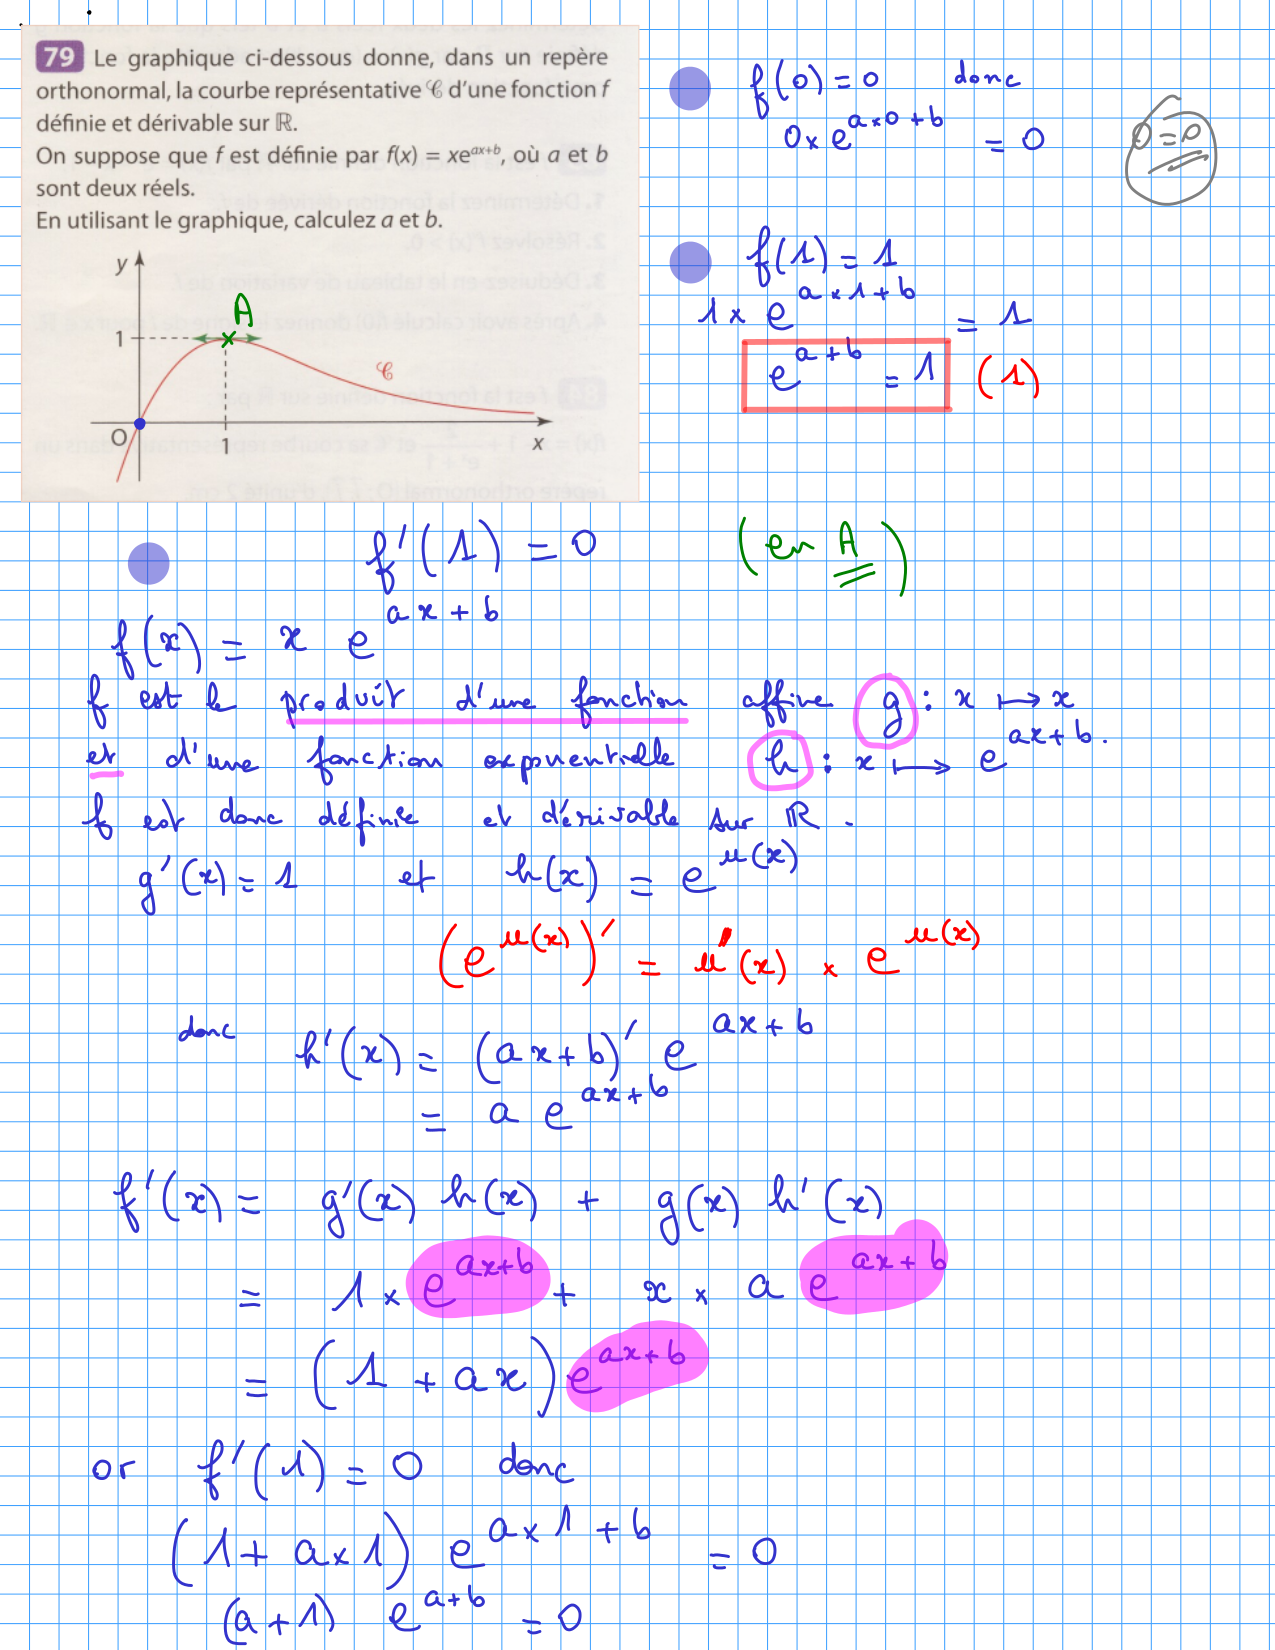 79 Le graphique ci-dessous donne, dans un repère
orthonormal, la courbe représentative 𝒞 d'une fonction f
définie et dérivable sur ℝ.
On suppose que f est définie par f(x) = xe^{ax+b}, où a et b
sont deux réels.
En utilisant le graphique, calculez a et b.
y
A
1
𝒞
O
1
x
f(0) = 0 donc
0 × e^{a×0+b} = 0
0 = 0
f(1) = 1
1 × e^{a×1+b} = 1
e^{a+b} = 1 (1)
f'(1) = 0 (en A)
f(x) = x e^{ax+b}
f est le produit d'une fonction affine g : x ⟼ x
et d'une fonction exponentielle h : x ⟼ e^{ax+b}.
f est donc définie et dérivable sur ℝ.
g'(x) = 1 et h(x) = e^{u(x)}
(e^{u(x)})' = u'(x) × e^{u(x)}
donc h'(x) = (ax+b)' e^{ax+b}
= a e^{ax+b}
f'(x) = g'(x) h(x) + g(x) h'(x)
= 1 × e^{ax+b} + x × a e^{ax+b}
= (1 + ax) e^{ax+b}
or f'(1) = 0 donc
(1 + a×1) e^{a×1+b} = 0
(a+1) e^{a+b} = 0